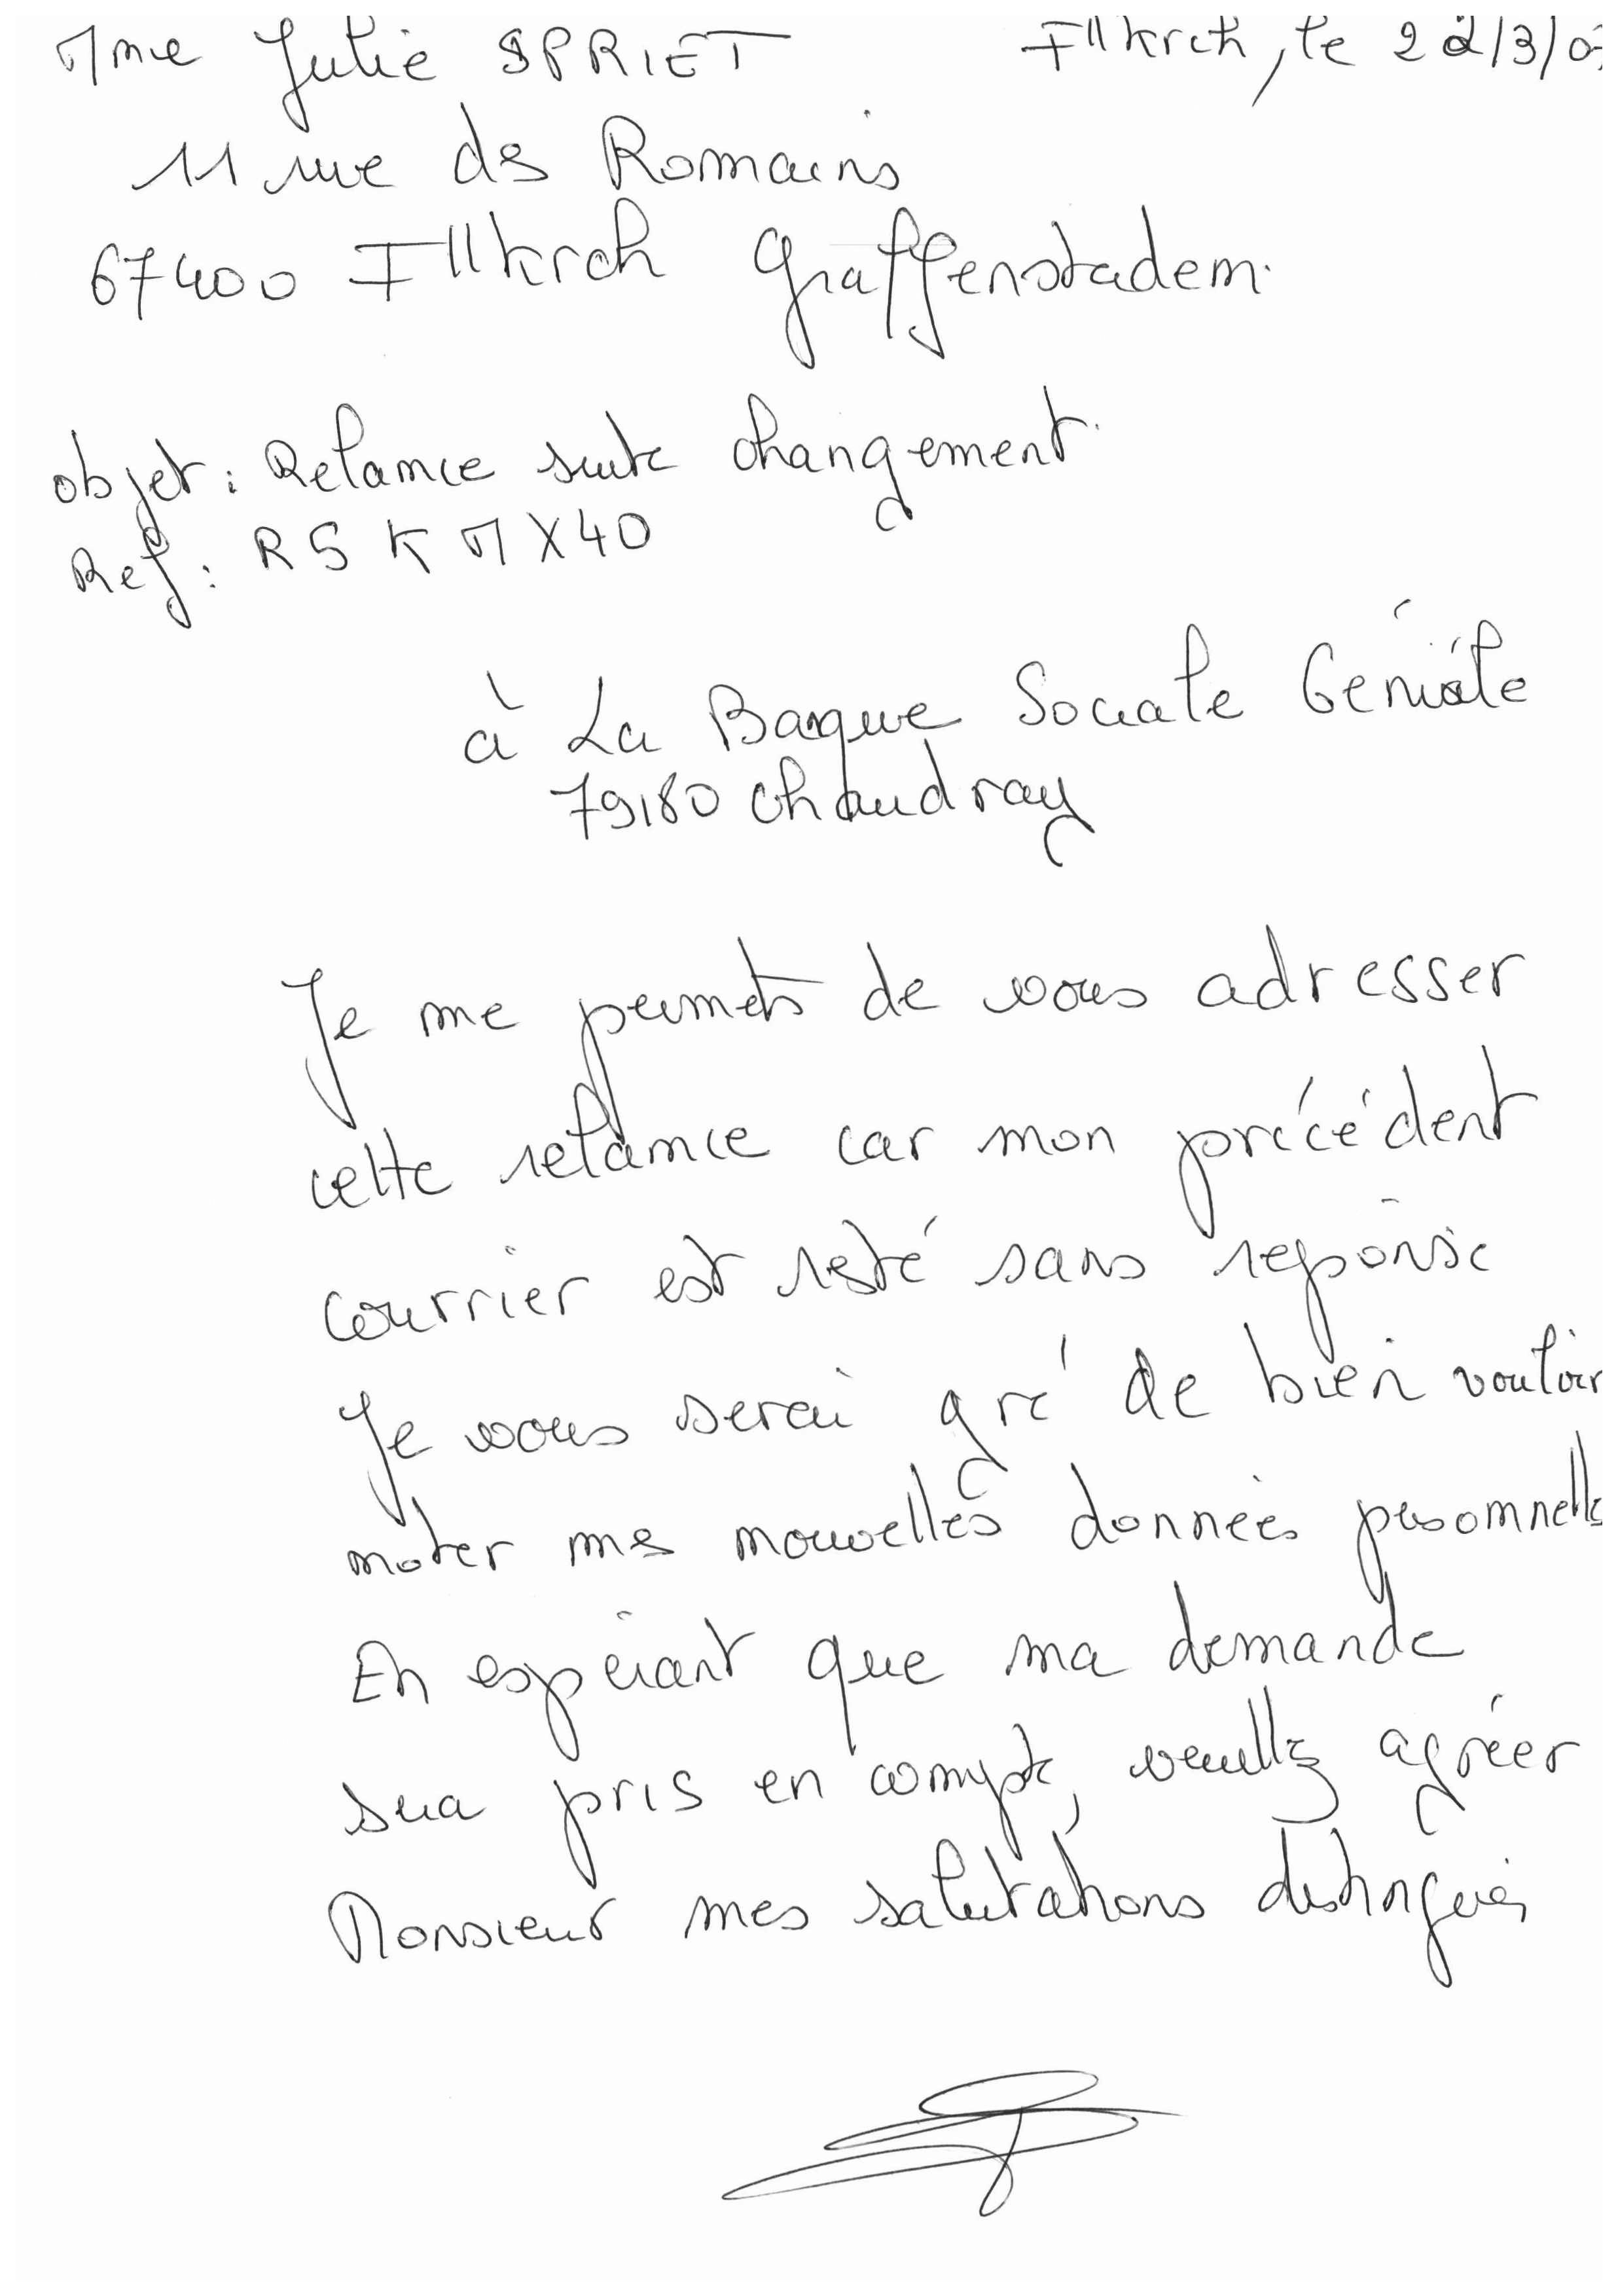 Mme Julie SPRIET Illkrch, le 22/3/0
11 rue des Romains
67400 Illkrch Graffenstadem
objet : Relance suite changement.
Ref : RSKMX40
à La Banque Sociale Géniale
79180 Chaudray
Je me permets de vous adresser
cette relance car mon précédent
courrier est resté sans reponse
Je vous serai gré de bien vouloir
noter mes nouvelles données personnelles
En espérant que ma demande
sera pris en compte, veuillez agréer
Monsieur mes salutations distinguées